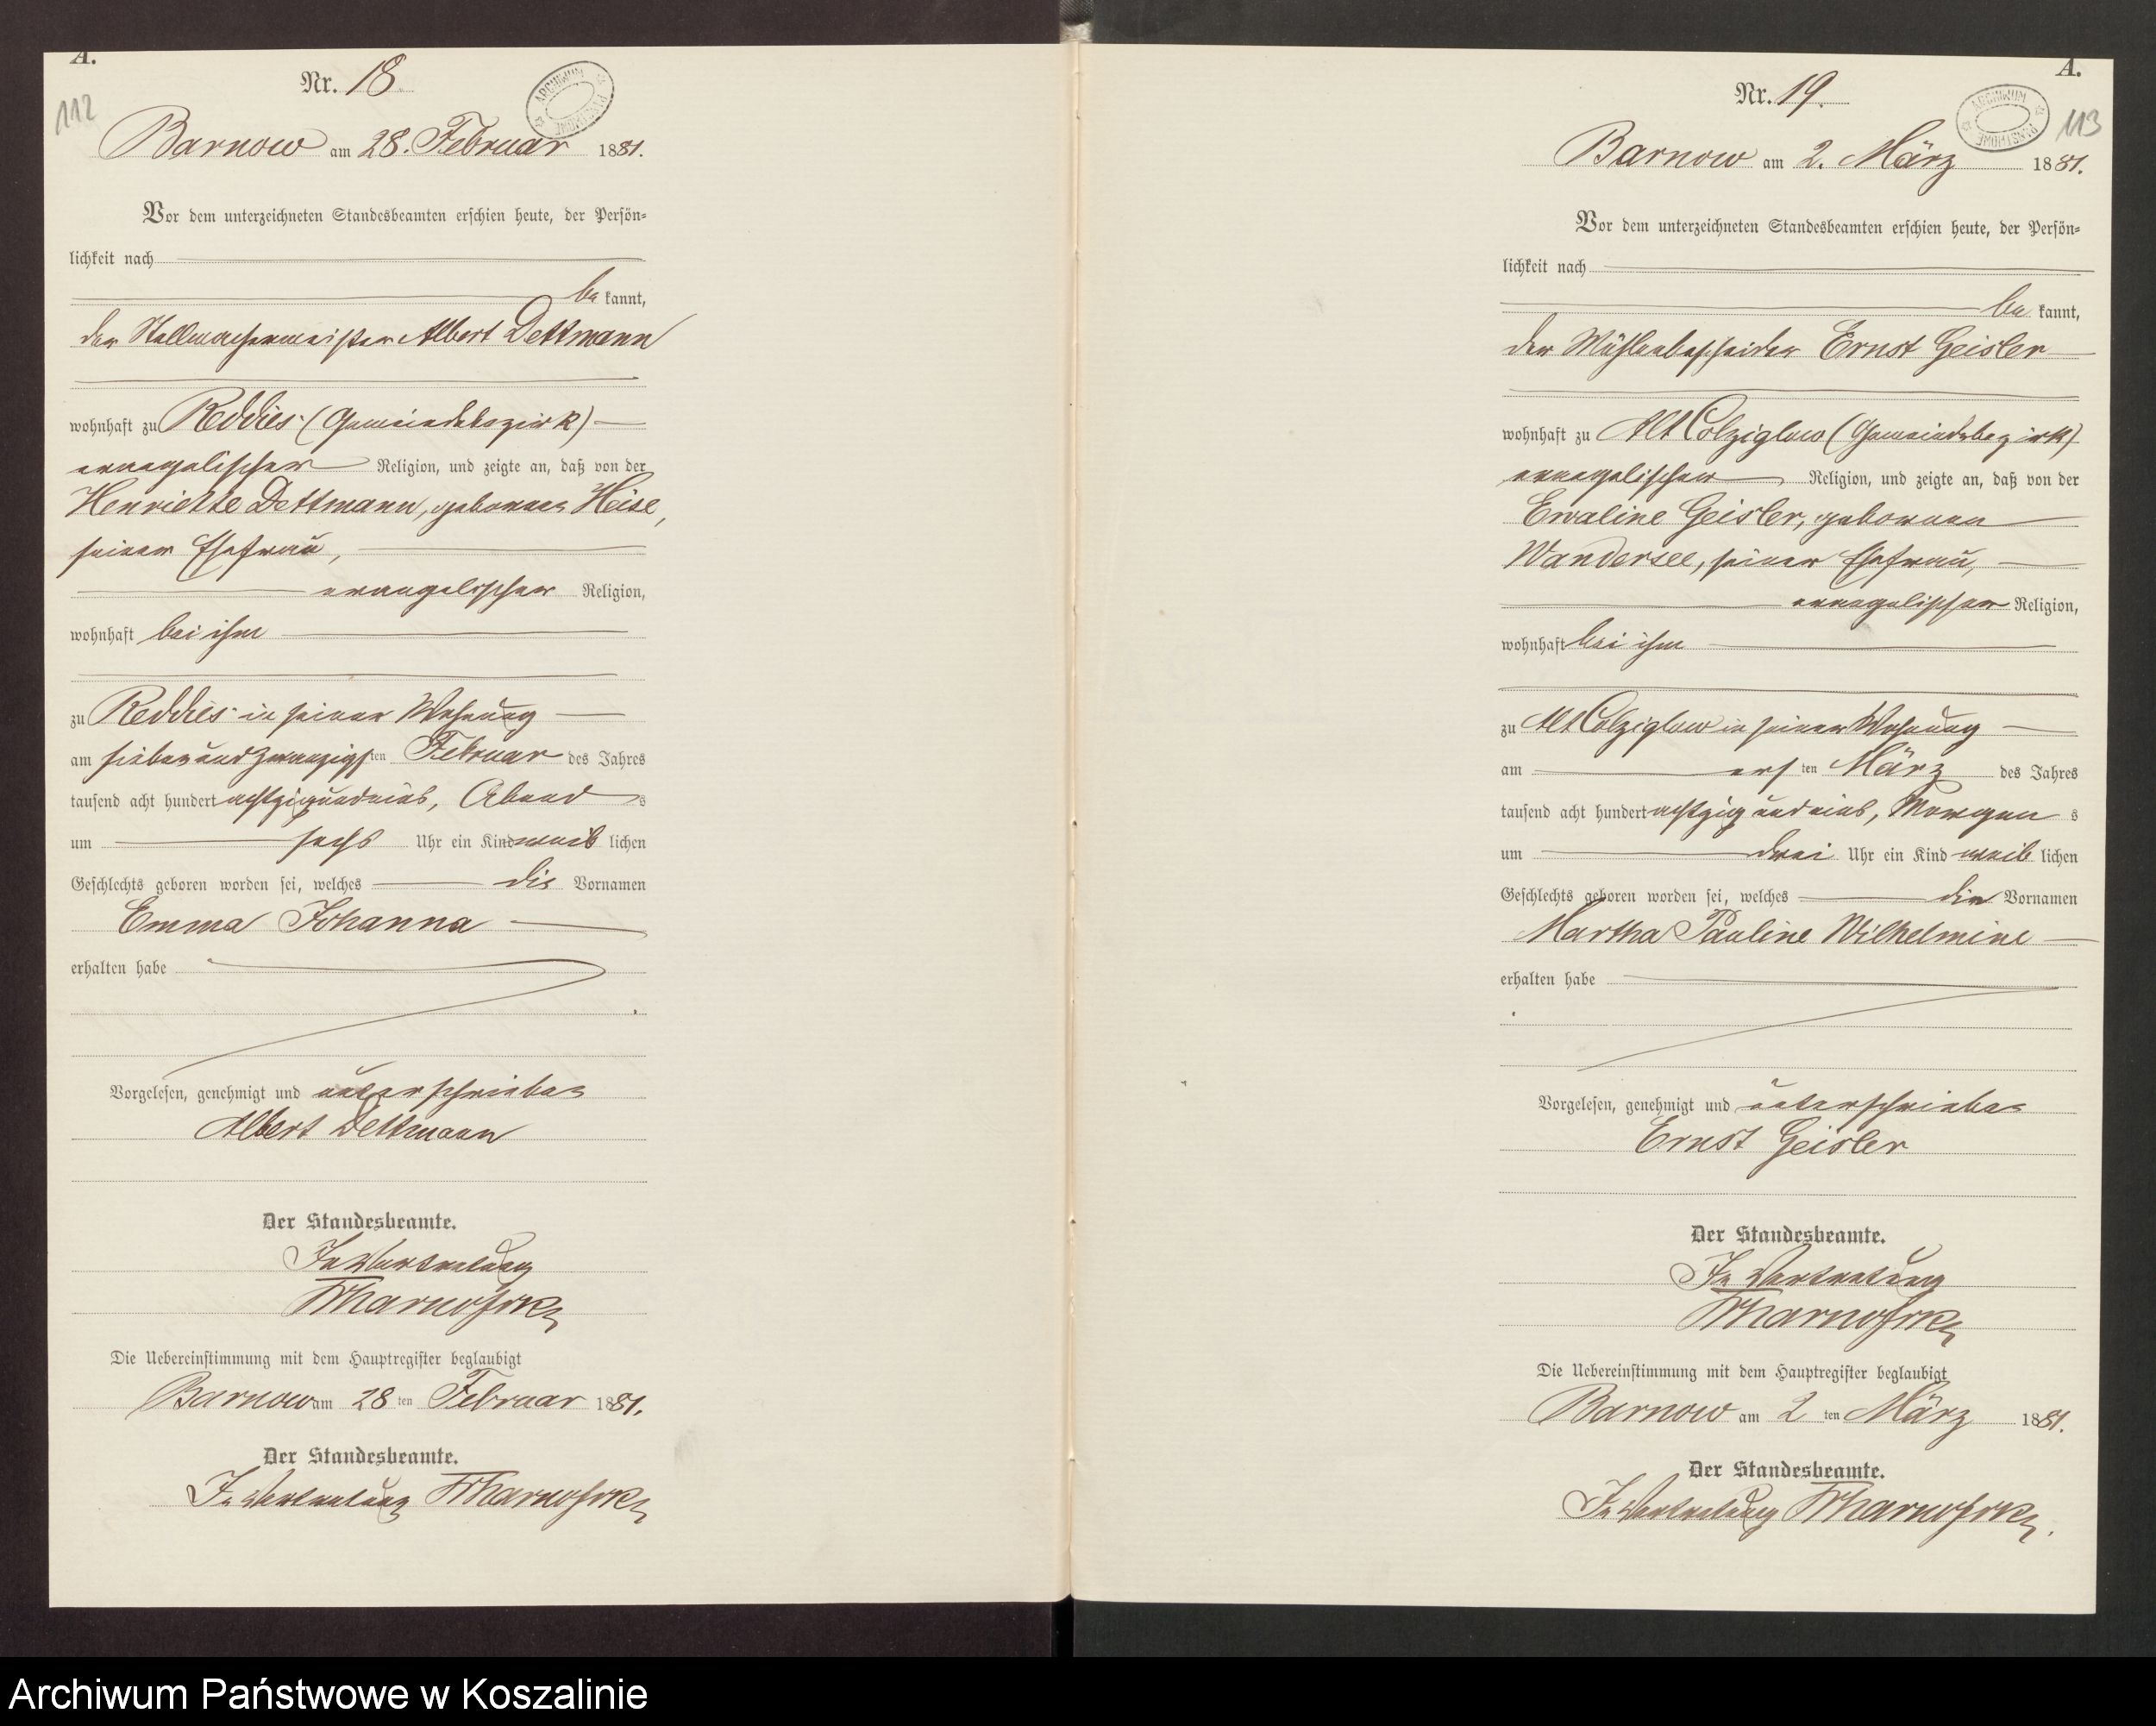 A.
Nr. 18.
112
ARCHIWUM PAŃSTWOWE
Barnow am 28. Februar 1881.
Vor dem unterzeichneten Standesbeamten erschien heute, der Persön-
lichkeit nach
be kannt,
der Stellmachermeister Albert Dettmann
wohnhaft zu Reddies (Gemeindebezirk)
evangelischer Religion, und zeigte an, daß von der
Henriette Dettmann, geborenen Heise,
seiner Ehefrau,
evangelischer Religion,
wohnhaft bei ihm
zu Reddies in seiner Wohnung
am siebenundzwanzigsten Februar des Jahres
tausend acht hundert achtzigundeins, Abend s
um sechs Uhr ein Kind weib lichen
Geschlechts geboren worden sei, welches die Vornamen
Emma Johanna
erhalten habe
Vorgelesen, genehmigt und unterschrieben
Albert Dettmann
Der Standesbeamte.
In Vertretung
Die Uebereinstimmung mit dem Hauptregister beglaubigt
Barnow am 28 ten Februar 1881.
Der Standesbeamte.
In Vertretung
A.
Nr. 19.
113
ARCHIWUM PAŃSTWOWE
Barnow am 2. März 1881.
Vor dem unterzeichneten Standesbeamten erschien heute, der Persön-
lichkeit nach
be kannt,
der Mühlenbescheider Ernst Geisler
wohnhaft zu Alt Colziglow (Gemeindebezirk)
evangelischer Religion, und zeigte an, daß von der
Ewaline Geisler, geborenen
Wandersee, seiner Ehefrau,
evangelischer Religion,
wohnhaft bei ihm
zu Alt Colziglow in seiner Wohnung
am ers ten März des Jahres
tausend acht hundert achtzig und eins, Morgen s
um drei Uhr ein Kind weib lichen
Geschlechts geboren worden sei, welches die Vornamen
Martha Pauline Wilhelmine
erhalten habe
Vorgelesen, genehmigt und unterschrieben
Ernst Geisler
Der Standesbeamte.
In Vertretung
Die Uebereinstimmung mit dem Hauptregister beglaubigt
Barnow am 2 ten März 1881.
Der Standesbeamte.
In Vertretung
Archiwum Państwowe w Koszalinie